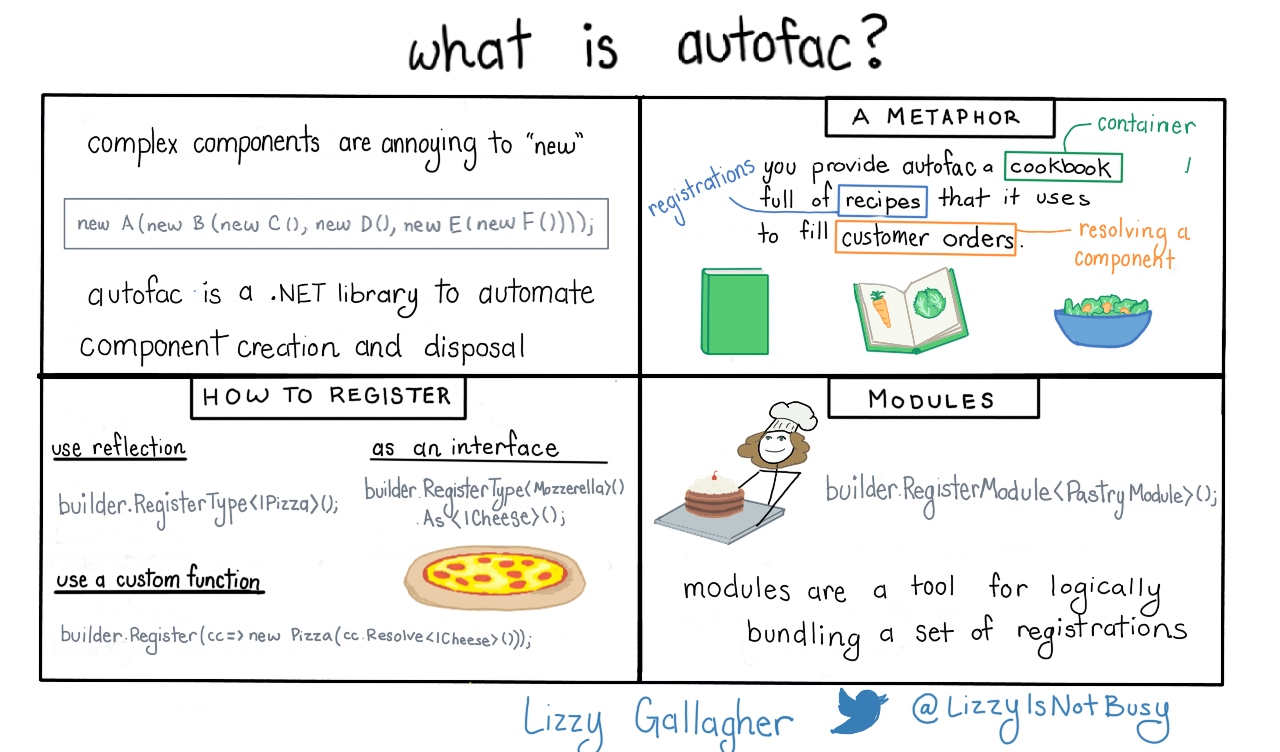 what is autofac?
complex components are annoying to "new"
new A(new B(new C(), new D(), new E(new F())));
autofac is a .NET library to automate
component creation and disposal
A METAPHOR
container
registrations
you provide autofac a cookbook
full of recipes that it uses
to fill customer orders.
resolving a
component
HOW TO REGISTER
use reflection
builder.RegisterType<IPizza>();
as an interface
builder.RegisterType<Mozzerella>()
.As<ICheese>();
use a custom function
builder.Register(cc=> new Pizza(cc.Resolve<ICheese>()));
MODULES
builder.RegisterModule<PastryModule>();
modules are a tool for logically
bundling a set of registrations
Lizzy Gallagher
@LizzyIsNotBusy